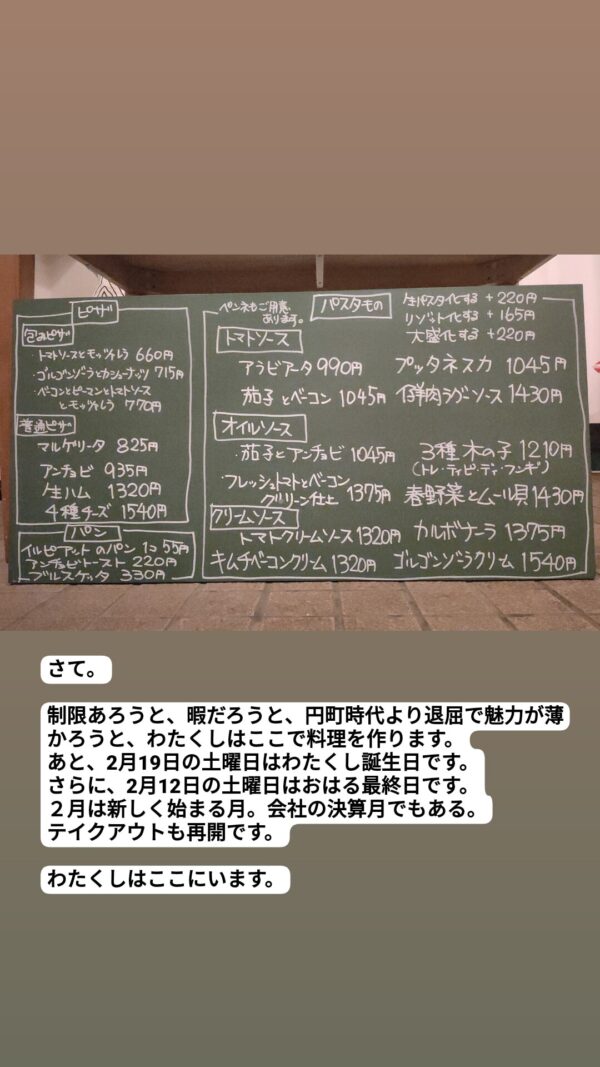 ピザ
包みピザ
・トマトソースとモッツァレラ 660円
・ゴルゴンゾーラとカシューナッツ 715円
・ベーコンとピーマンとトマトソース
とモッツァレラ 770円
普通ピザ
マルゲリータ 825円
アンチョビ 935円
生ハム 1320円
4種チーズ 1540円
パン
イルピアットのパン 1コ 55円
アンチョビトースト 220円
ブルスケッタ 330円
ペンネもご用意
あります。
パスタもの
生パスタ化する +220円
リゾット化する +165円
大盛化する +220円
トマトソース
アラビアータ 990円
プッタネスカ 1045円
茄子とベーコン 1045円
仔羊肉ラグーソース 1430円
オイルソース
・茄子とアンチョビ 1045円
3種木の子 1210円
(トレ・ティピ・ディ・フンギ)
・フレッシュトマトとベーコン
グリーン仕上 1375円
春野菜とムール貝 1430円
クリームソース
トマトクリームソース 1320円
カルボナーラ 1375円
キムチベーコンクリーム 1320円
ゴルゴンゾーラクリーム 1540円
さて。
制限あろうと、暇だろうと、円町時代より退屈で魅力が薄
かろうと、わたくしはここで料理を作ります。
あと、2月19日の土曜日はわたくし誕生日です。
さらに、2月12日の土曜日はおはる最終日です。
２月は新しく始まる月。会社の決算月でもある。
テイクアウトも再開です。
わたくしはここにいます。